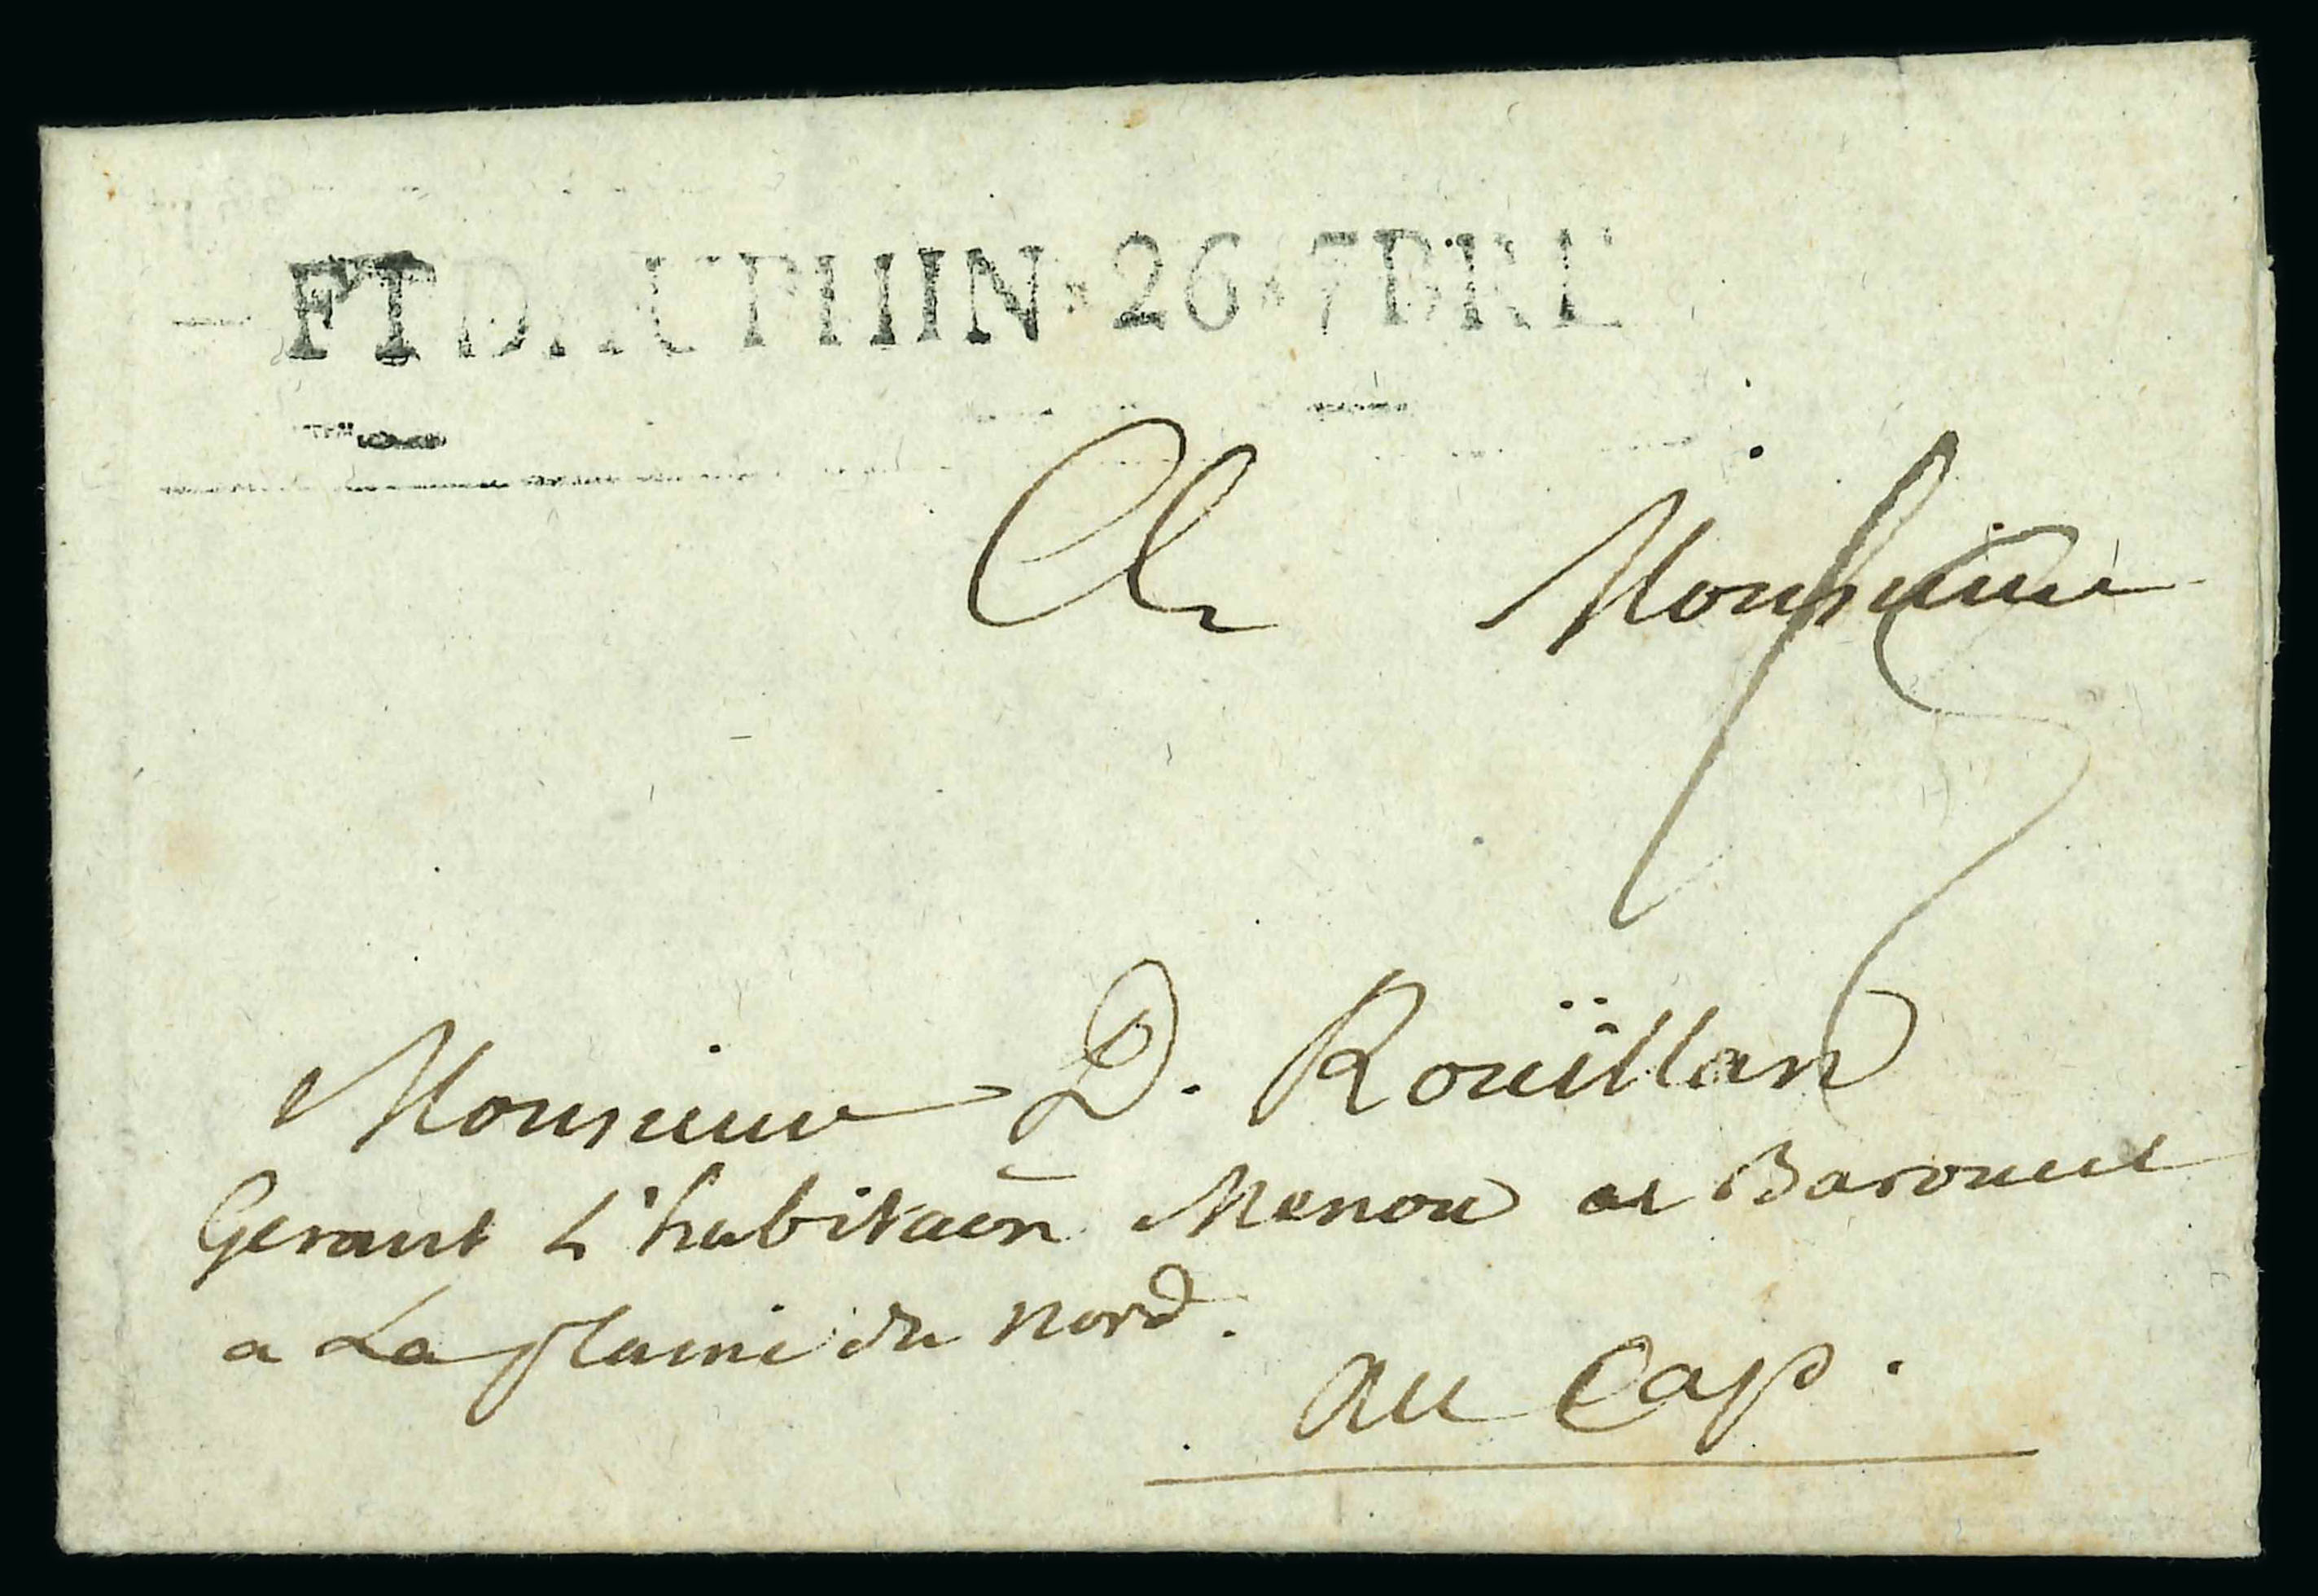 FT DAUPHIN * 26 * 7BRE
A Monsieur
Monsieur D. Rouïllan
Gerant L'habitaõn Menou et Baronne
a La plaine du nord.
au Cap.